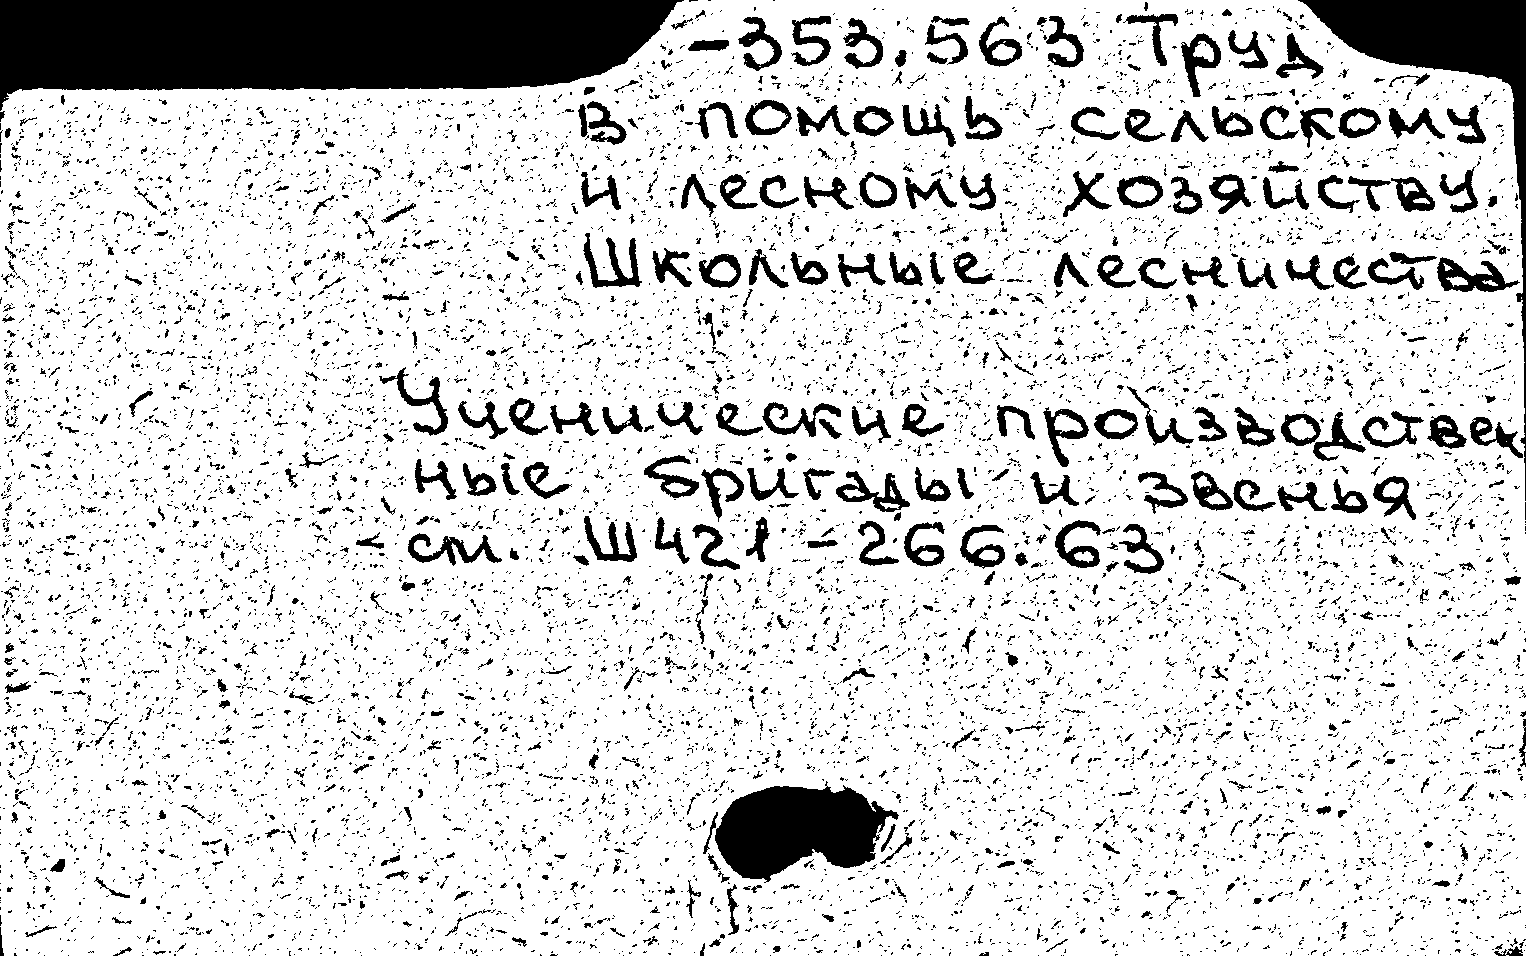 -353.563 Труд
в помощь сельскому
и лесному хозяйству.
Школьные лесничества
Ученические производствен-
ные бригады и звенья
- см. Ш421-266.63